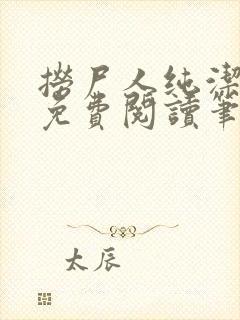 撈尸人純潔
免費閱讀筆
太辰